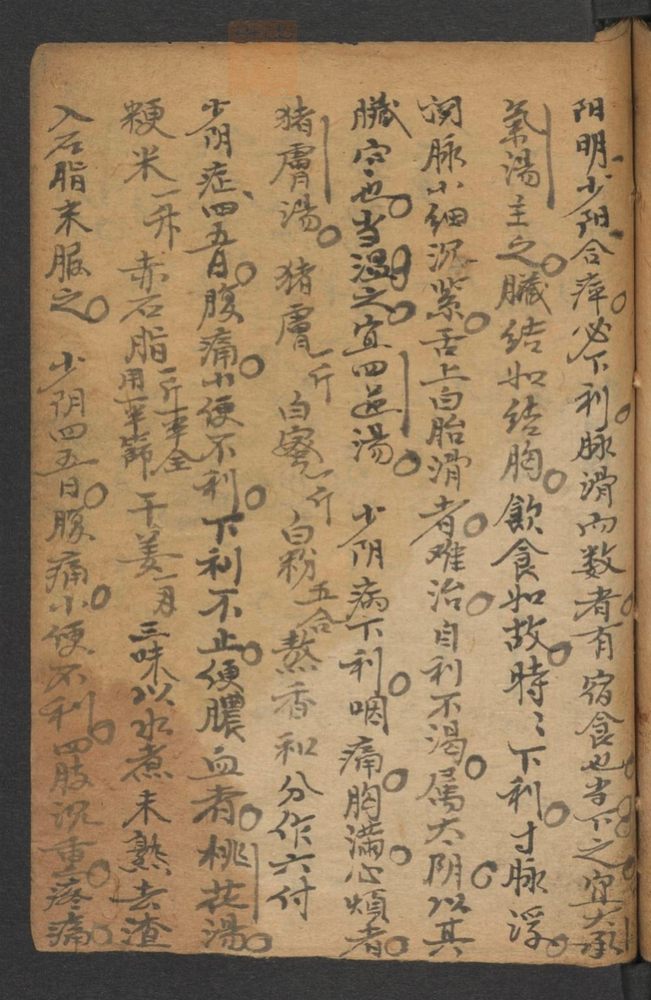 阳明少阳合病。必下利。脉滑而数者。有宿食也。当下之。宜大承
氣湯主之。臟结如结胸。飲食如故。時々下利。寸脉浮。
関脉小细沉紧。舌上白胎滑者。难治。自利不渴。属太阴。以其
臟寒也。当温之。宜四逆湯。 少阴病下利。咽痛。胸滿心煩者。
猪膚湯。 猪膚一斤 白蜜一斤 白粉五合 熬香和分作六付
少阴症。四五日。腹痛。小便不利。下利不止。便膿血者。桃花湯。
粳米一升 赤石脂一斤一半全用一半篩 干姜一两 三味以水煮米熟去渣
入石脂末服之。 少阴四五日。腹痛。小便不利。四肢沉重。疼痛。